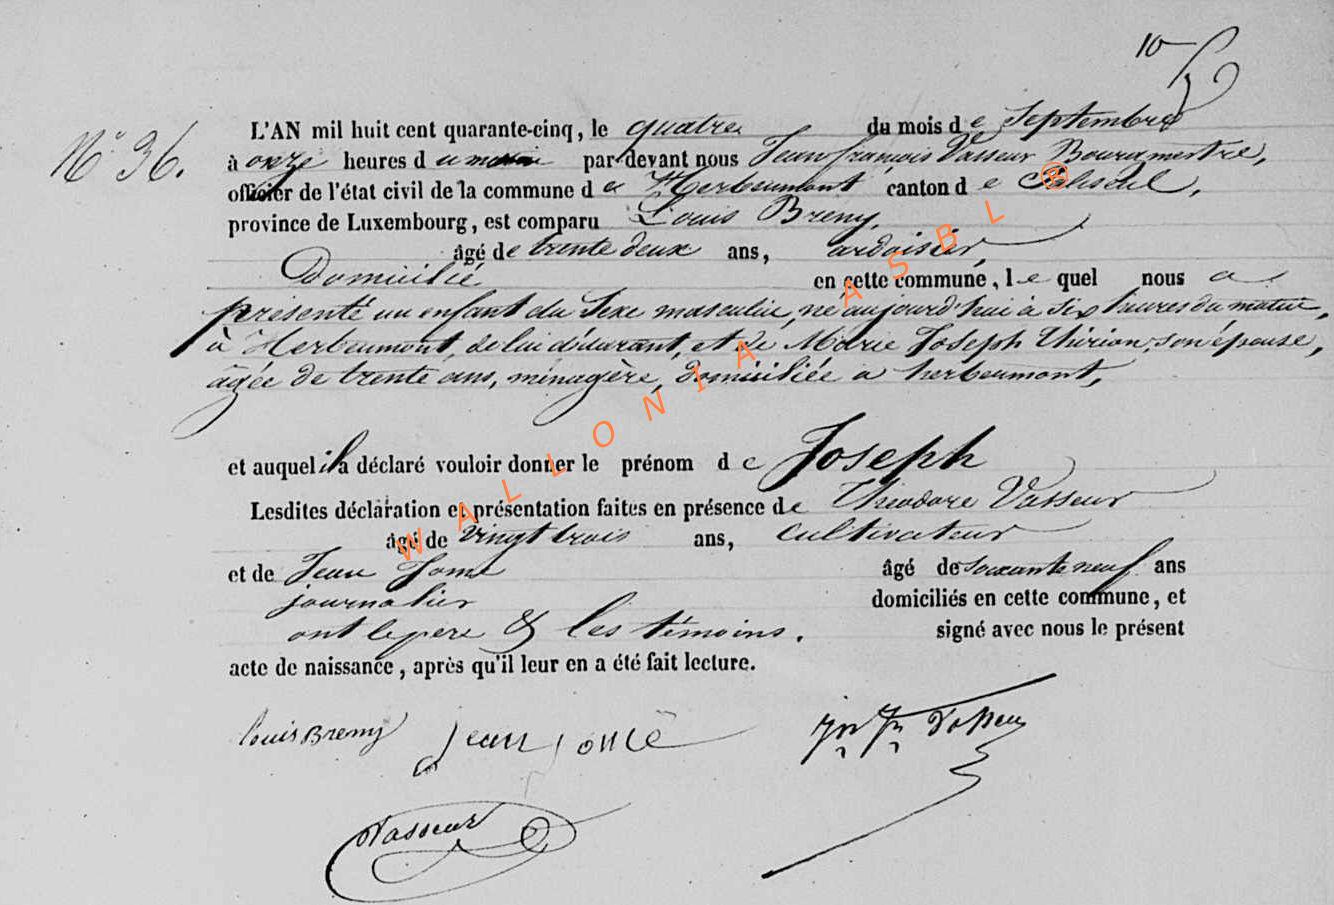 10
N° 36.
L'AN mil huit cent quarante-cinq, le quatre du mois de Septembre
à onze heures du matin par-devant nous Jean françois Vasseur Bourgmestre,
officier de l'état civil de la commune de Herbeumont canton de
province de Luxembourg, est comparu Louis Bremy,
âgé de trente deux ans, ardoisier,
Domicilié en cette commune, lequel nous a
présenté un enfant du Sexe masculin, né aujourd'hui à six heures du matin,
à Herbeumont, de lui déclarant, et de Marie Joseph Thirion, son épouse,
âgée de trente ans, ménagère, domiciliée a herbeumont,
et auquel il a déclaré vouloir donner le prénom de Joseph
Lesdites déclaration et présentation faites en présence de Théodore Vasseur
âgé de vingt trois ans, cultivateur
et de Jean âgé de soixante neuf ans
journalier domiciliés en cette commune, et
ont le pere & les témoins. signé avec nous le présent
acte de naissance, après qu'il leur en a été fait lecture.
louis Bremy Jean
Vasseur
WALLONIA ASBL